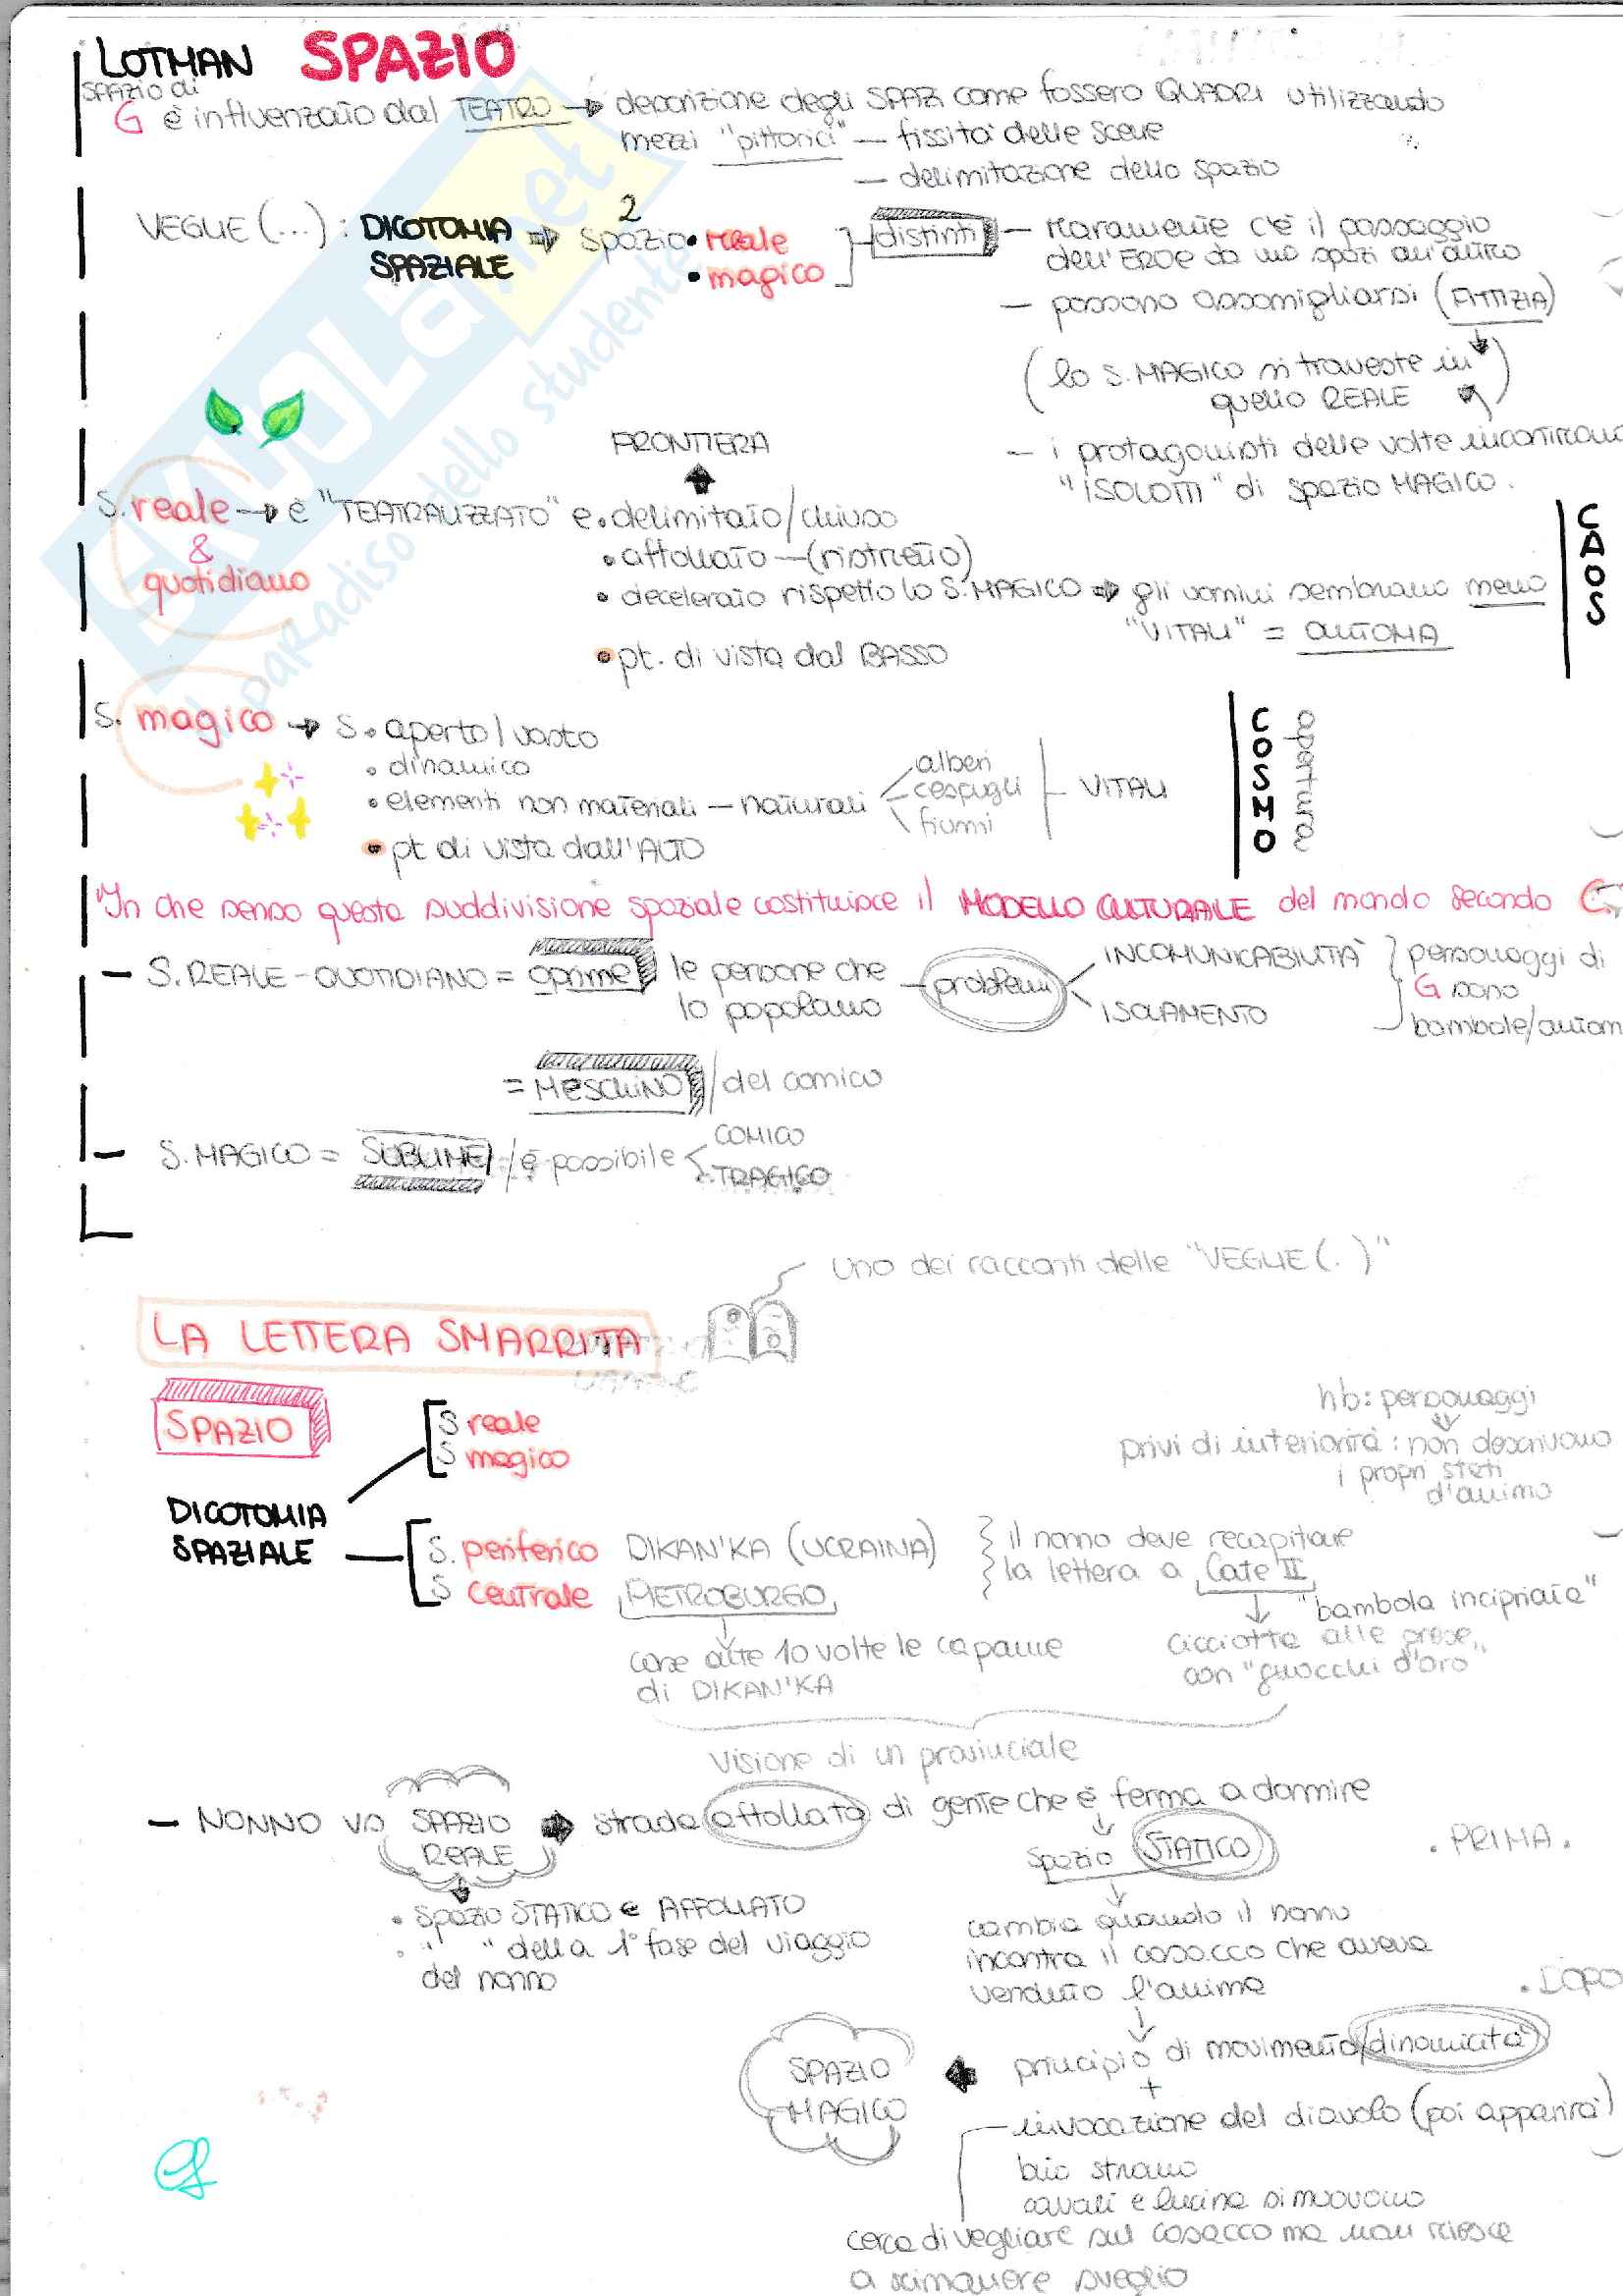 LOTMAN SPAZIO
SPAZIO di
G è influenzato dal TEATRO → descrizione degli SPAZI come fossero QUADRI utilizzando
mezzi "pittorici" — fissità delle scene
— delimitazione dello spazio
VEGLIE (...) : DICOTOMIA SPAZIALE ⇒ 2 spazio • reale • magico
distinti — raramente c'è il passaggio
dell'EROE da uno spazi all'altro
— possono assomigliarsi (FITTIZIA)
(lo S.MAGICO si traveste in
quello REALE)
— i protagonisti delle volte incontrano
"ISOLOTTI" di spazio MAGICO.
FRONTIERA
S. reale → è "TEATRALIZZATO" e • delimitato/chiuso
& quotidiano
• affollato — (ristretto)
• decelerato rispetto lo S.MAGICO ⇒ gli uomini sembrano meno
"VITALI" = AUTOMA
• pt. di vista dal BASSO
CAOS
S. magico → S. • aperto/vasto
• dinamico
• elementi non materiali — naturali
alberi
cespugli
fiumi
VITALI
• pt di vista dall'ALTO
COSMO
apertura
"In che senso questa suddivisione spaziale costituisce il MODELLO CULTURALE del mondo secondo G.
— S.REALE-QUOTIDIANO = oprime le persone che
lo popolano
— problemi
INCOMUNICABILITÀ
ISOLAMENTO
personaggi di
G sono
bambole/autom
= MESCHINO / del comico
— S.MAGICO = SUBLIME / è possibile
COMICO
TRAGICO
Uno dei racconti delle "VEGLIE (.)"
LA LETTERA SMARRITA
SPAZIO
S reale
S magico
nb: personaggi
privi di interiorità: non descrivono
i propri stati
d'animo
DICOTOMIA
SPAZIALE
S. periferico DIKAN'KA (UCRAINA)
S centrale PIETROBURGO
il nonno deve recapitare
la lettera a Cate II
"bambola incipriata"
case alte 10 volte le capanne
di DIKAN'KA
cicciotta alle prese
con "gnocchi d'oro"
Visione di un provinciale
— NONNO VS SPAZIO REALE ⇒ strada affollata di gente che è ferma a dormire
Spazio STATICO
. PRIMA .
• Spazio STATICO e AFFOLLATO
• " " della 1° fase del viaggio
del nonno
cambia quando il nonno
incontra il cosacco che aveva
venduto l'anima
. DOPO
SPAZIO MAGICO
principio di movimento/dinamicità
+
invocazione del diavolo (poi apparirà)
buio strano
cavalli e lucina si muovono
cerca di vegliare sul cosacco ma non riesce
a rimanere sveglio
SKUOLA.net
il paradiso dello studente